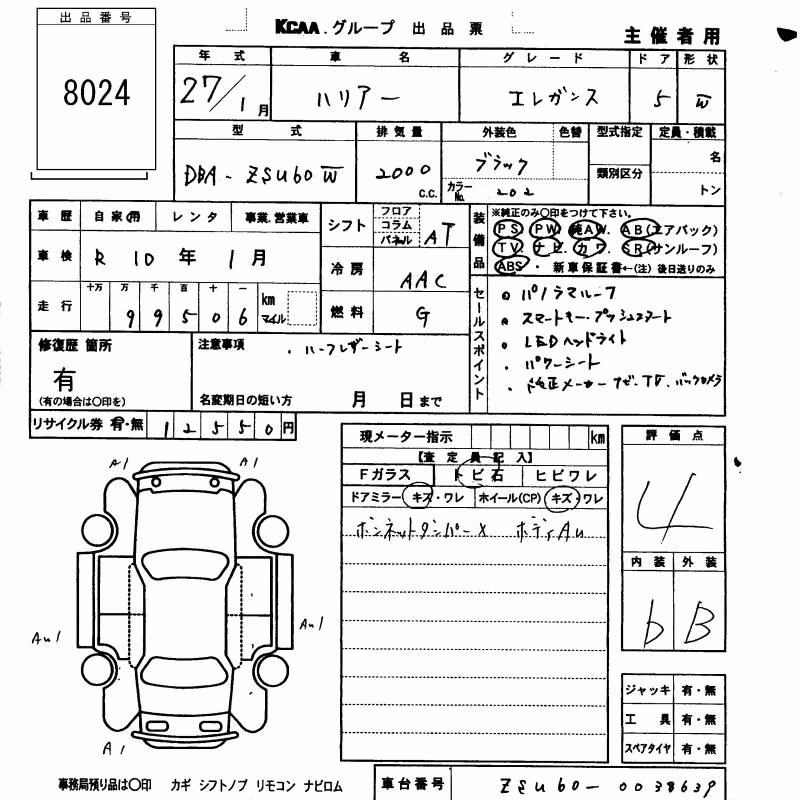 出品番号
8024
KCAA.グループ 出品票
主催者用
年式 車名 グレード ドア 形状
27/1月 ハリアー エレガンス 5 W
型式 排気量 外装色 色替 型式指定 定員・積載
DBA-ZSU60W 2000 C.C. ブラック 類別区分 名
カラーNo. 202 トン
車歴 自家用 レンタ 事業,営業車
車検 R 10年 1月
走行 十万 万 千 百 十 一
99506 km マイル
シフト フロア コラム パネル AT
冷房 AAC
燃料 G
装備品
※純正のみ○印をつけて下さい。
PS PW 純AW. AB(エアバック)
TV. ナビ. カワ. SR(サンルーフ)
ABS・新車保証書←(注)後日送りのみ
セールスポイント
パノラマルーフ
スマートキー・プッシュスタート
LEDヘッドライト
パワーシート
純正メーカーナビ・TV.バックカメラ
修復歴 箇所
有
(有の場合は○印を)
注意事項
・ハーフレザーシート
名変期日の短い方 月 日まで
リサイクル券 有・無 12550円
現メーター指示 km
【査定員記入】
Fガラス トビ石 ヒビワレ
ドアミラー キズ・ワレ ホイール(CP) キズ・ワレ
ボンネットダンパーX ボディAU
評価点
4
内装 外装
b B
A1 A1
AU1 AU1
A1
ジャッキ 有・無
工具 有・無
スペアタイヤ 有・無
事務局預り品は○印 カギ シフトノブ リモコン ナビロム
車台番号 ZSU60-0038639